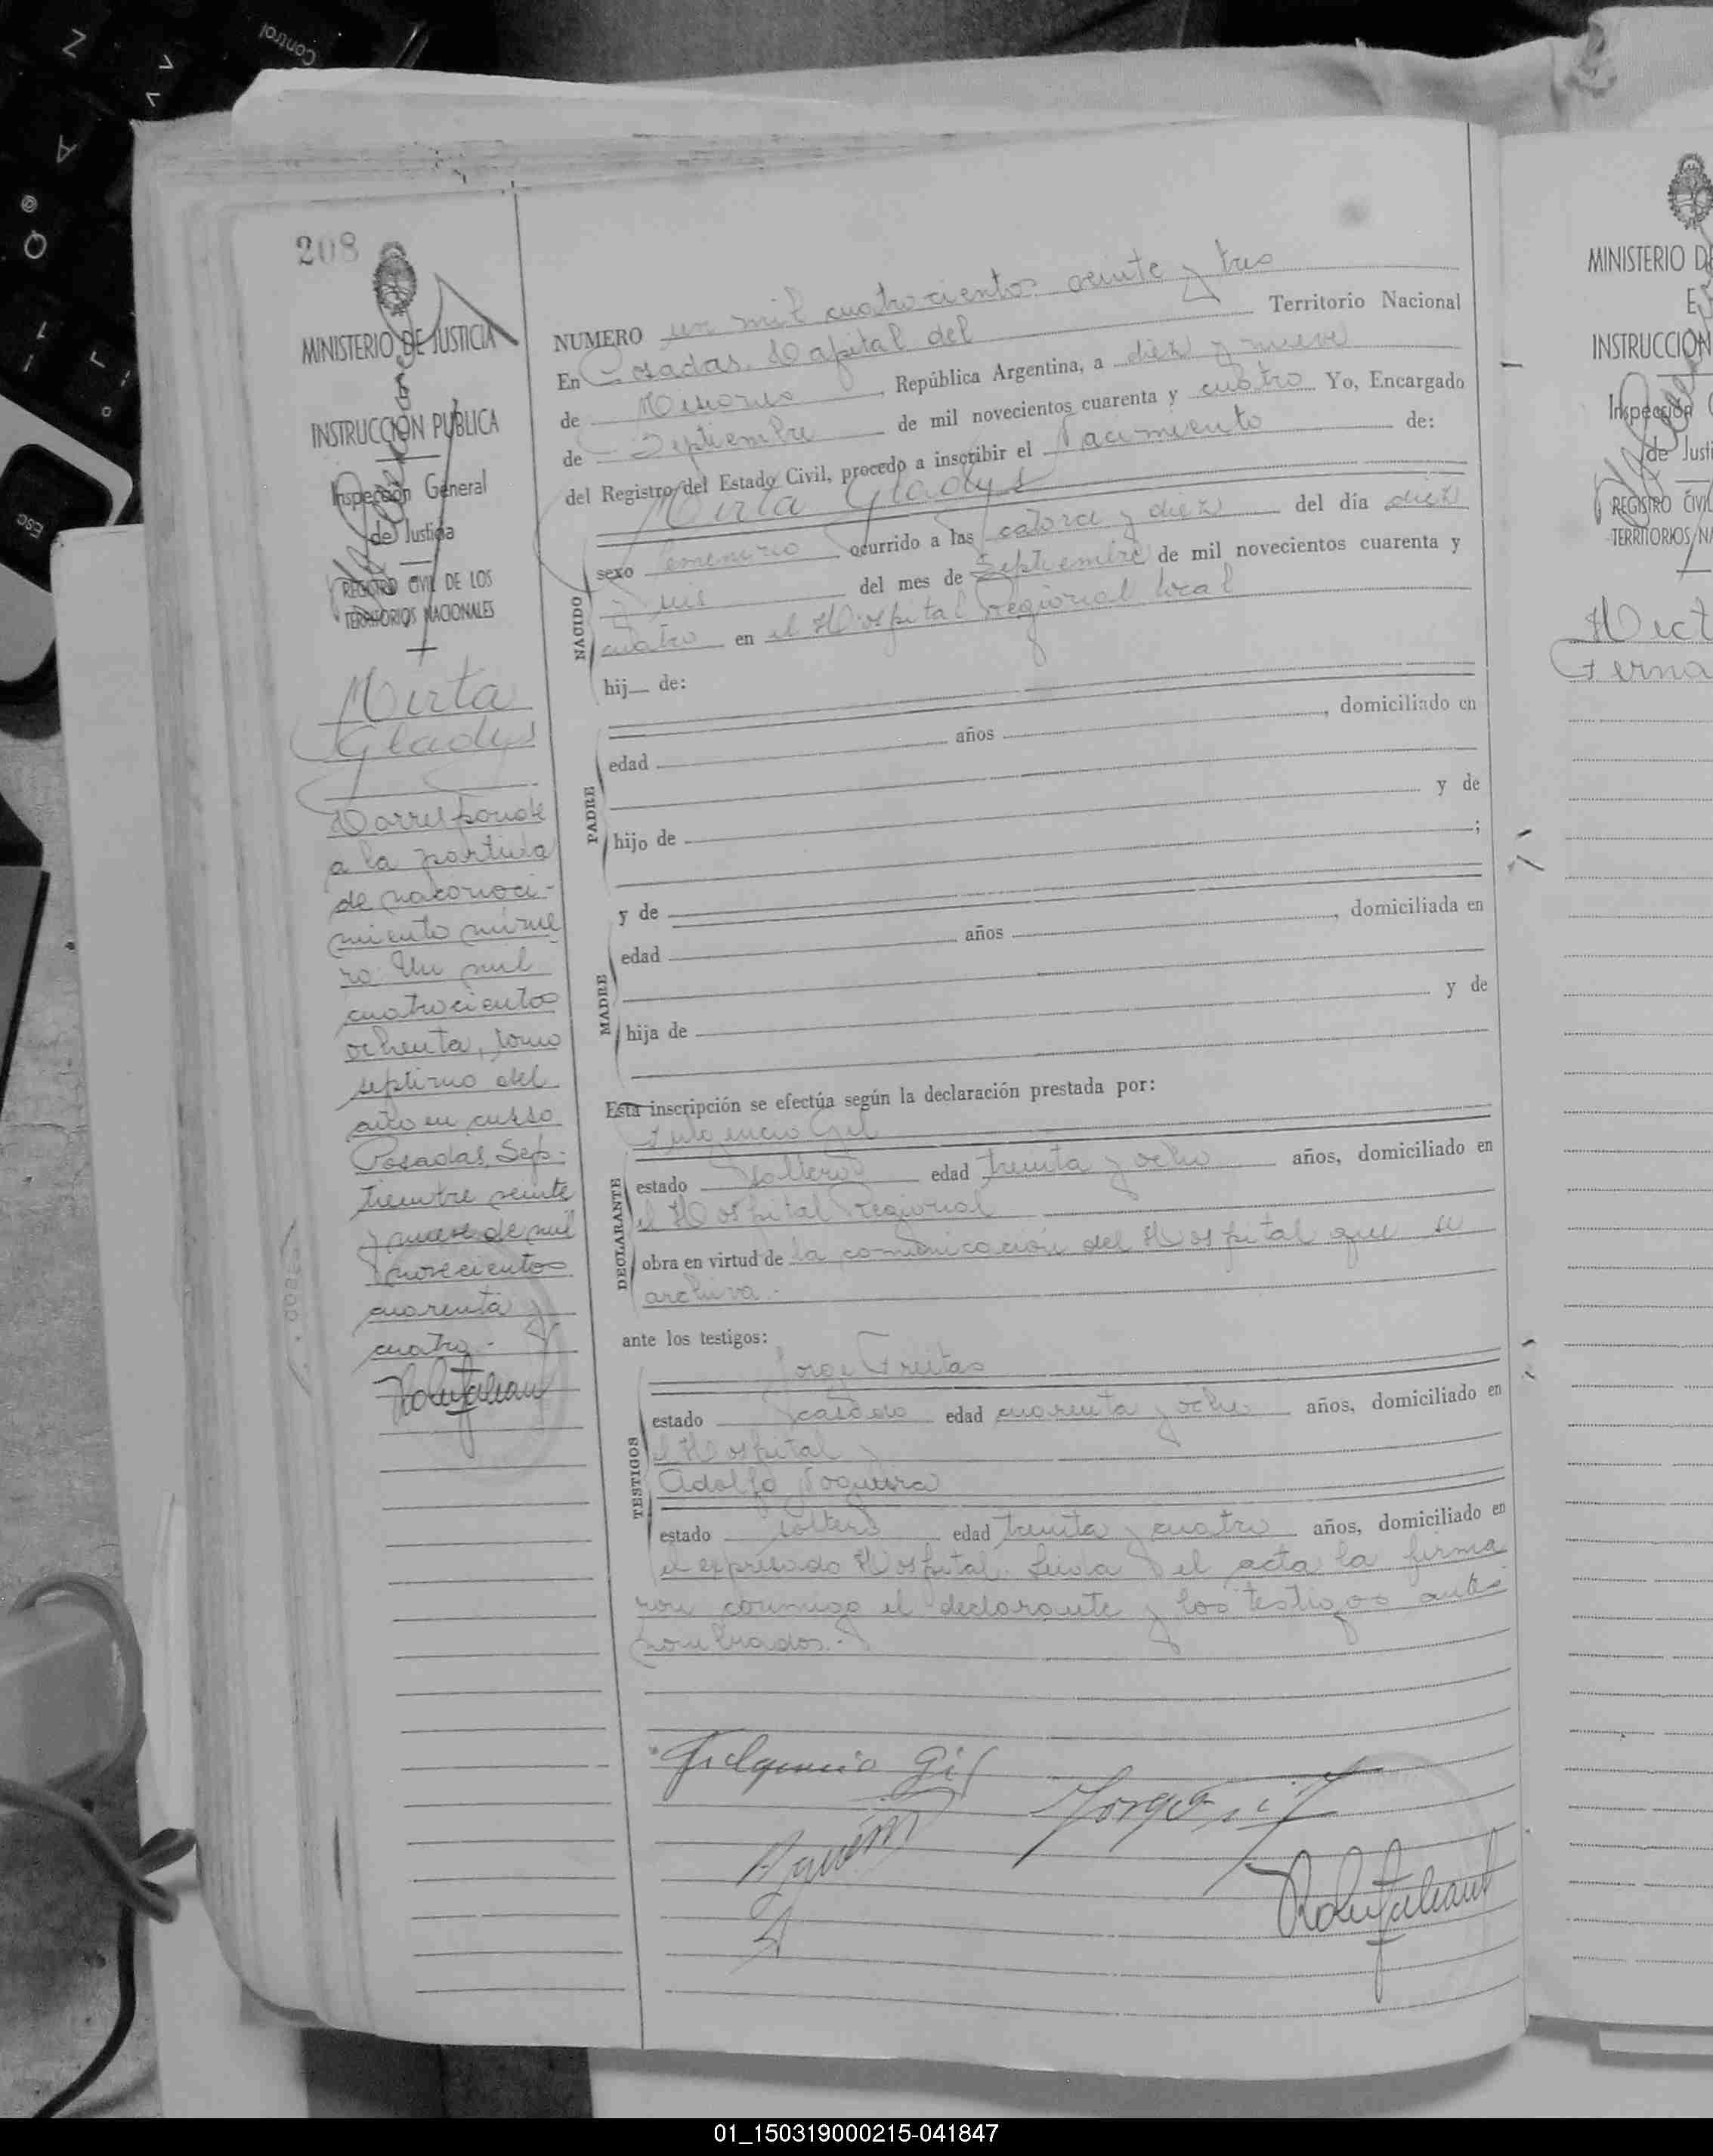 Control
Z
A
Q
Esc
208
MINISTERIO DE JUSTICIA
E
INSTRUCCIÓN PUBLICA
Inspección General
de Justicia
REGISTRO CIVIL DE LOS
TERRITORIOS NACIONALES
Mirta
Gladys
Corresponde
a la partida
de reconoci-
miento núme
ro: Un mil
cuatrocientos
ochenta, tomo
septimo del
año en curso
Posadas, Sep-
tiembre veinte
y nueve de mil
novecientos
cuarenta y
cuatro.-
NUMERO un mil cuatrocientos veinte y tres
En Posadas, Capital del Territorio Nacional
de Misiones, República Argentina, a diez y nueve
de Septiembre de mil novecientos cuarenta y cuatro Yo, Encargado
del Registro del Estado Civil, procedo a inscribir el Nacimiento de:
Mirta Gladys
NACIDO
sexo femenino ocurrido a las catorce y diez del día diez
y seis del mes de Septiembre de mil novecientos cuarenta y
cuatro en el Hospital Regional local
hij__ de:
PADRE
edad años , domiciliado en
hijo de y de
;
y de
MADRE
edad años , domiciliada en
hija de y de
Esta inscripción se efectúa según la declaración prestada por:
Fulgencio Gil
DECLARANTE
estado soltero edad treinta y ocho años, domiciliado en
el Hospital Regional
obra en virtud de la comunicación del Hospital que se
archiva.-
ante los testigos:
Jorge Freitas
TESTIGOS
estado casado edad cuarenta y ocho años, domiciliado en
el Hospital y
Adolfo Noguera
estado soltero edad treinta y cuatro años, domiciliado en
el expresado Hospital. Leida el acta la firma
ron conmigo el declarante y los testigos ante
nombrados.-
Fulgencio Gil
MINISTERIO D
E
INSTRUCCION
Inspección G
de Justi
REGISTRO CIVIL
TERRITORIOS NA
Hect
Ferna
01_150319000215-041847